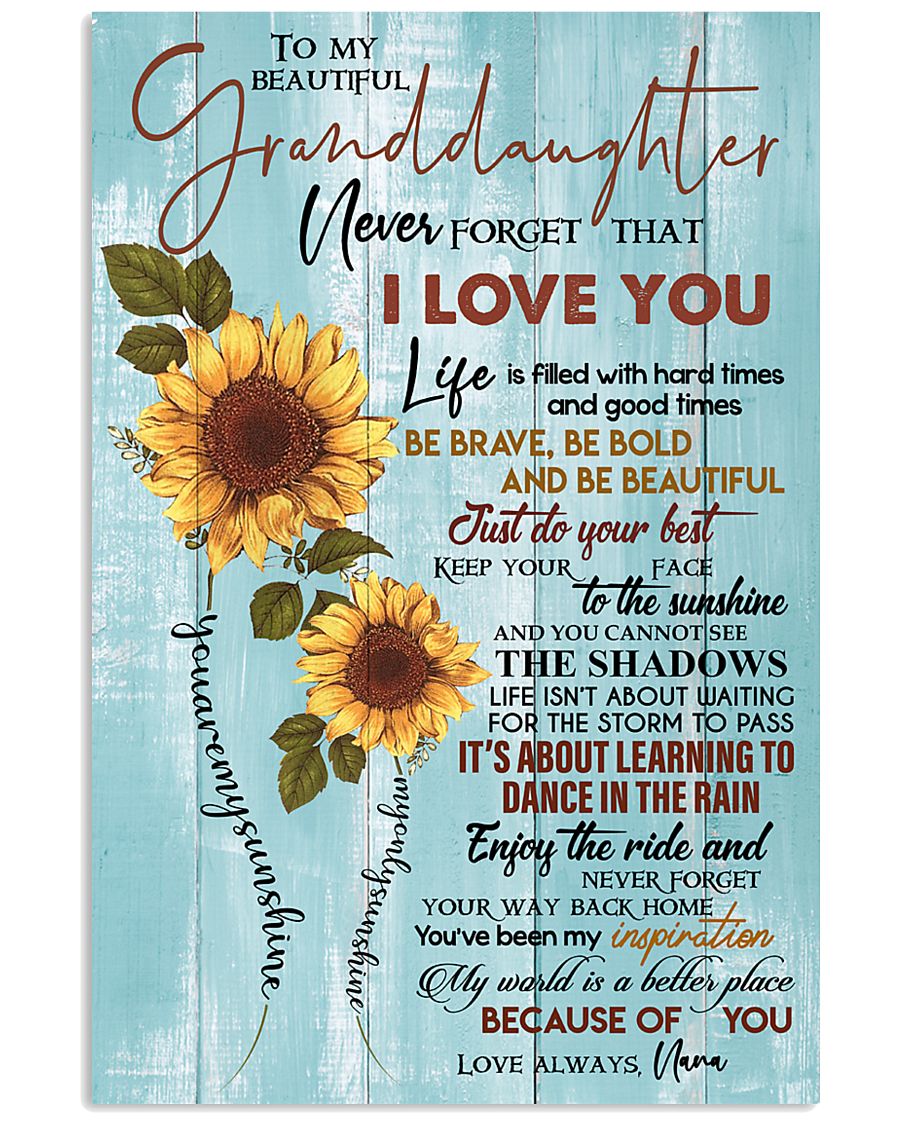 TO MY
BEAUTIFUL
Granddaughter
Never FORGET THAT
I LOVE YOU
Life is filled with hard times
and good times
BE BRAVE, BE BOLD
AND BE BEAUTIFUL
Just do your best
KEEP YOUR FACE
to the sunshine
AND YOU CANNOT SEE
THE SHADOWS
LIFE ISN'T ABOUT WAITING
FOR THE STORM TO PASS
IT'S ABOUT LEARNING TO
DANCE IN THE RAIN
Enjoy the ride and
NEVER FORGET
YOUR WAY BACK HOME
You've been my inspiration
My world is a better place
BECAUSE OF YOU
LOVE ALWAYS, Nana
youaremysunshine
myonlysunshine